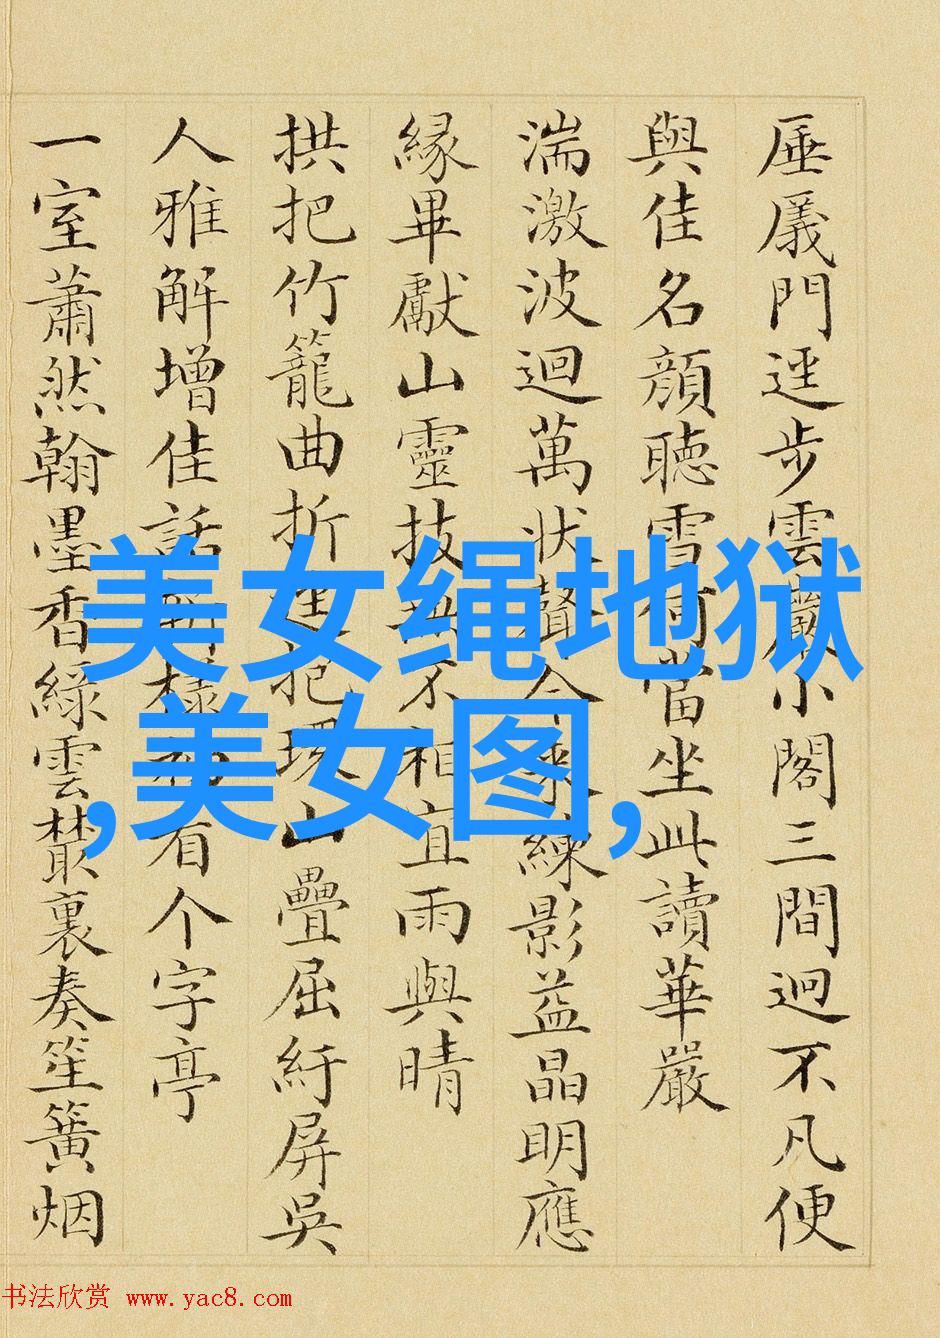 厜㕒門逕步雲巖小閣三間迥不凡便
與佳名顏聽雪何當坐此讀華嚴
湍激波迴萬狀聲今練影益晶明應
緣畢獻山靈技無不相宜雨與晴
拱把竹籠曲折逕把環山疊屈紆屏吳
人雅解增佳話樣有个字亭
一室蕭然翰墨香綠雲叢裏奏笙簧烟
美女绳地狱
,美女图,
书法欣赏 www.yac8.com